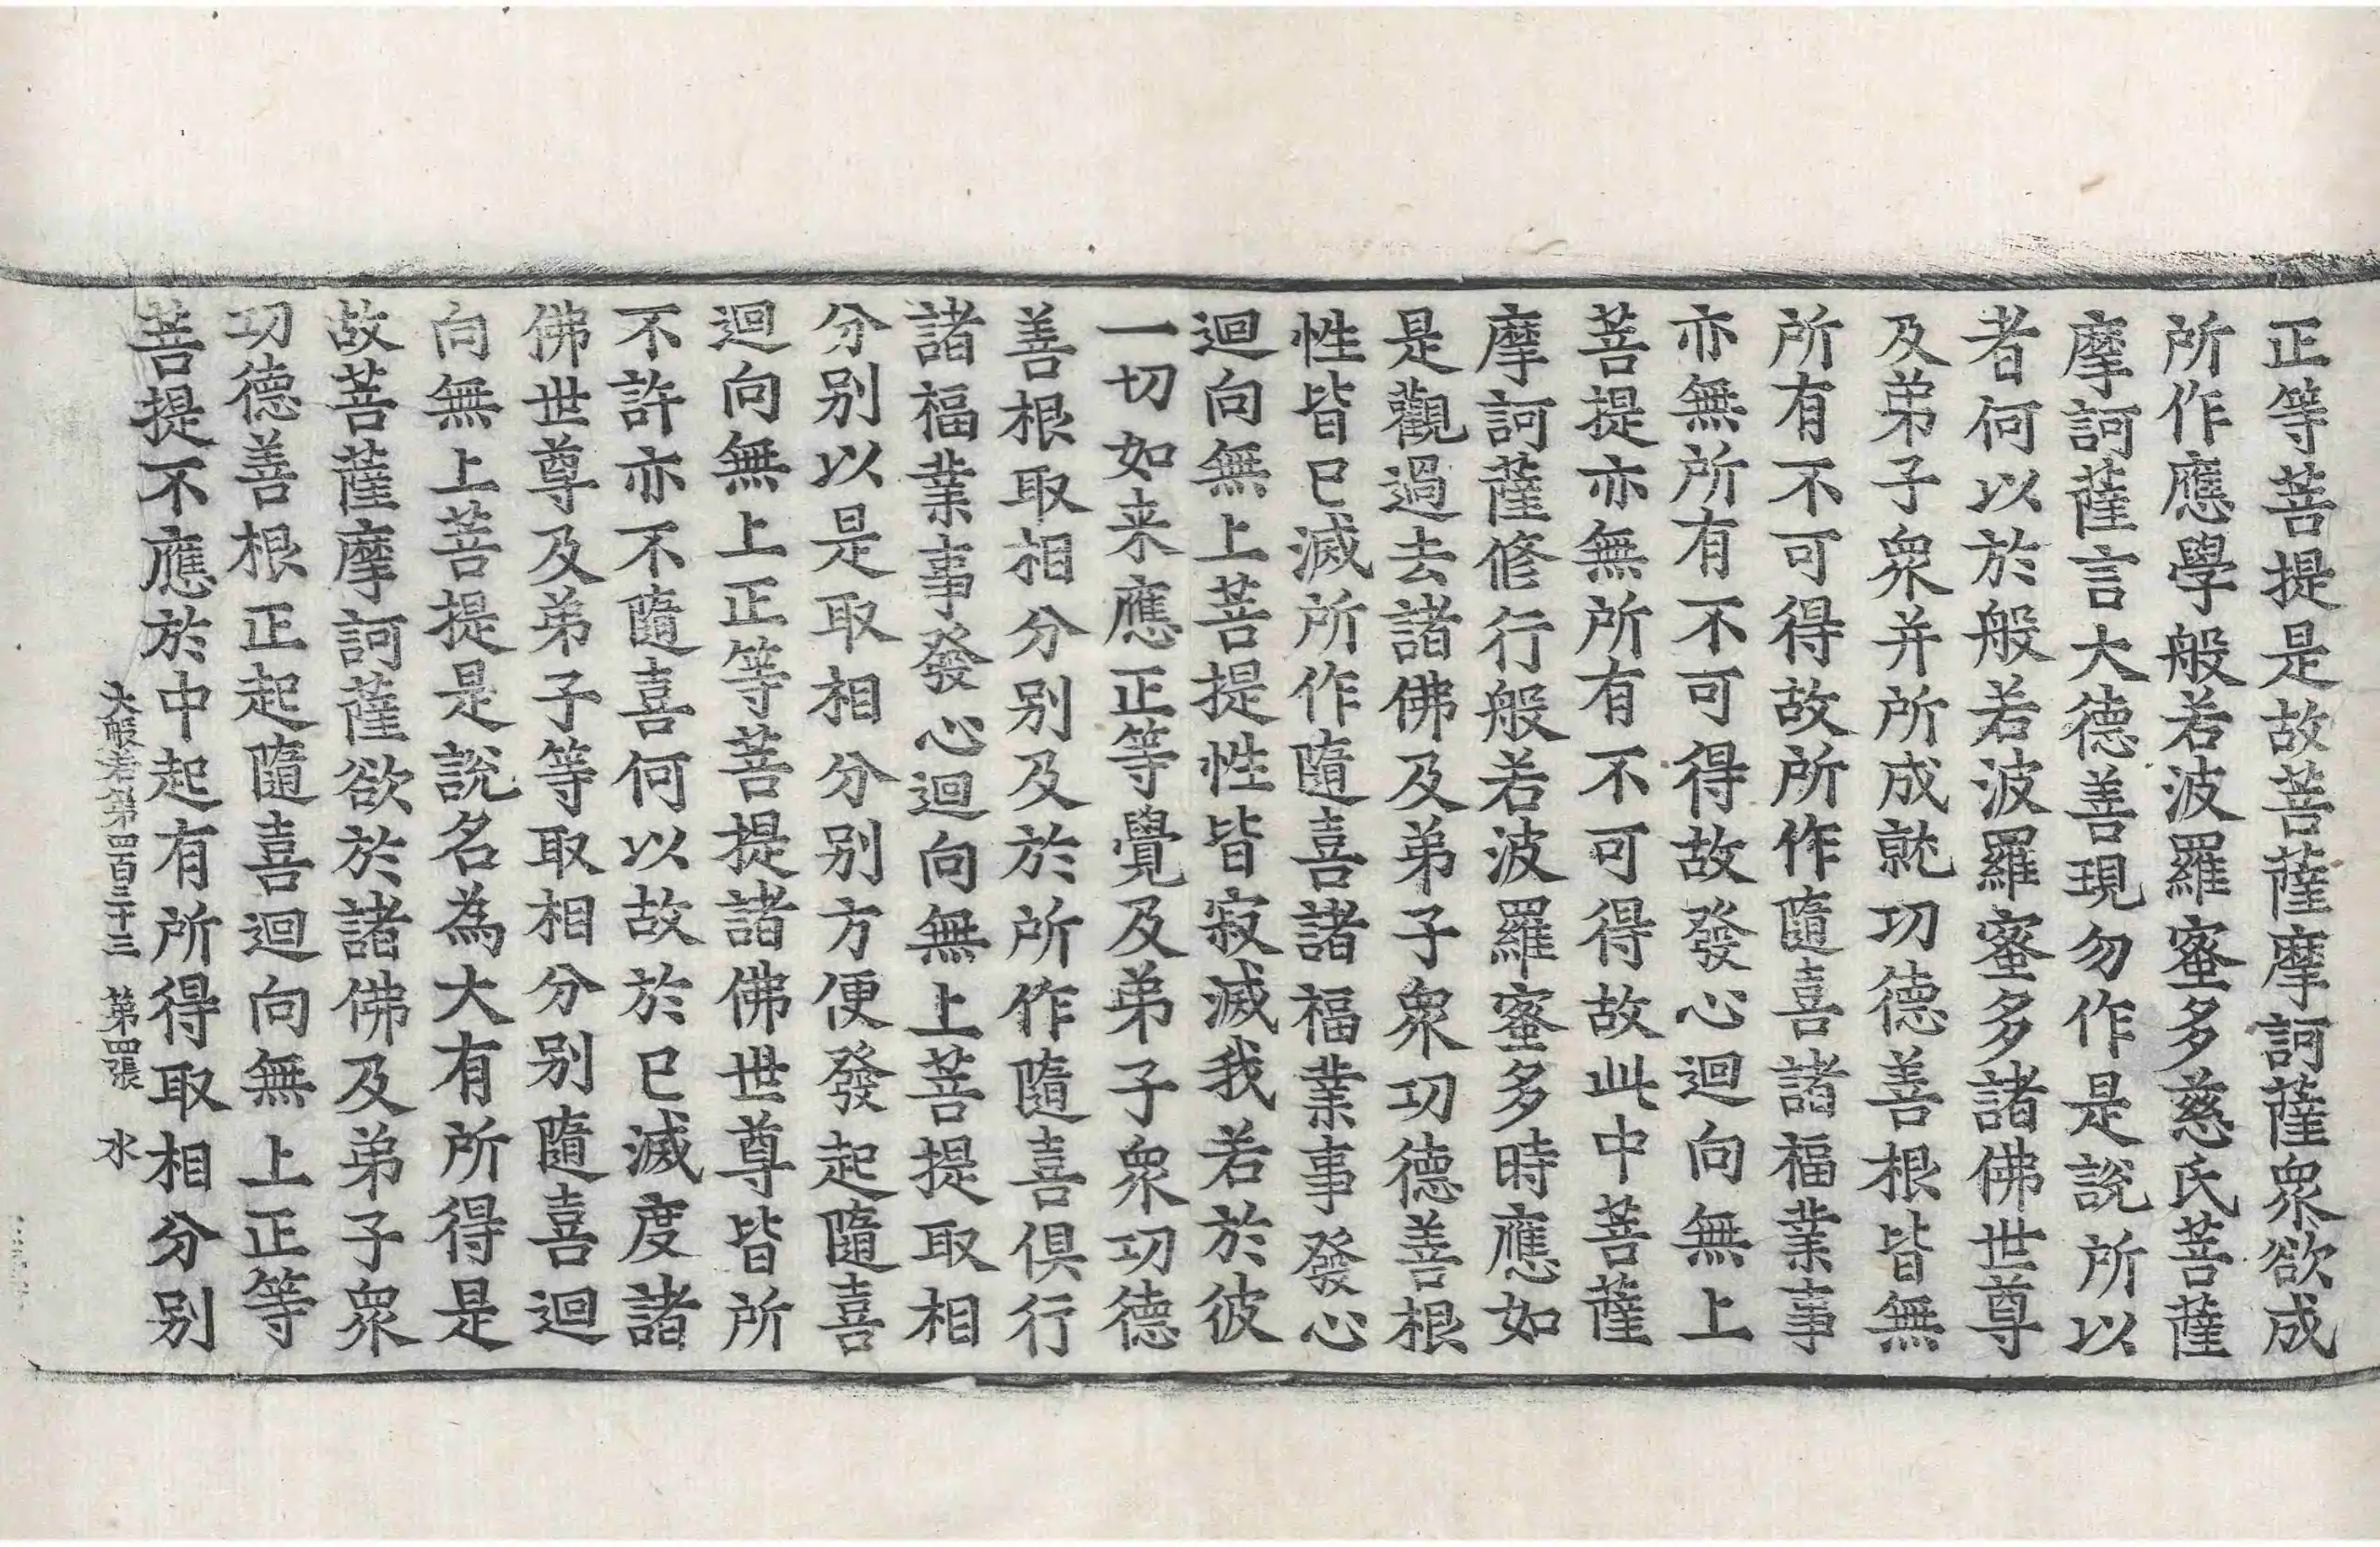 正等菩提是故菩薩摩訶薩衆欲成
所作應學般若波羅蜜多慈氏菩薩
摩訶薩言大德善現勿作是說所以
者何以於般若波羅蜜多諸佛世尊
及弟子衆并所成就功德善根皆無
所有不可得故所作隨喜諸福業事
亦無所有不可得故發心迴向無上
菩提亦無所有不可得故此中菩薩
摩訶薩修行般若波羅蜜多時應如
是觀過去諸佛及弟子衆功德善根
性皆已滅所作隨喜諸福業事發心
迴向無上菩提性皆寂滅我若於彼
一切如来應正等覺及弟子衆功德
善根取相分別及於所作隨喜俱行
諸福業事發心迴向無上菩提取相
分別以是取相分別方便發起隨喜
迴向無上正等菩提諸佛世尊皆所
不許亦不隨喜何以故於已滅度諸
佛世尊及弟子等取相分別隨喜迴
向無上菩提是說名為大有所得是
故菩薩摩訶薩欲於諸佛及弟子衆
功德善根正起隨喜迴向無上正等
菩提不應於中起有所得取相分別
大般若第四百三十三 第四張 水